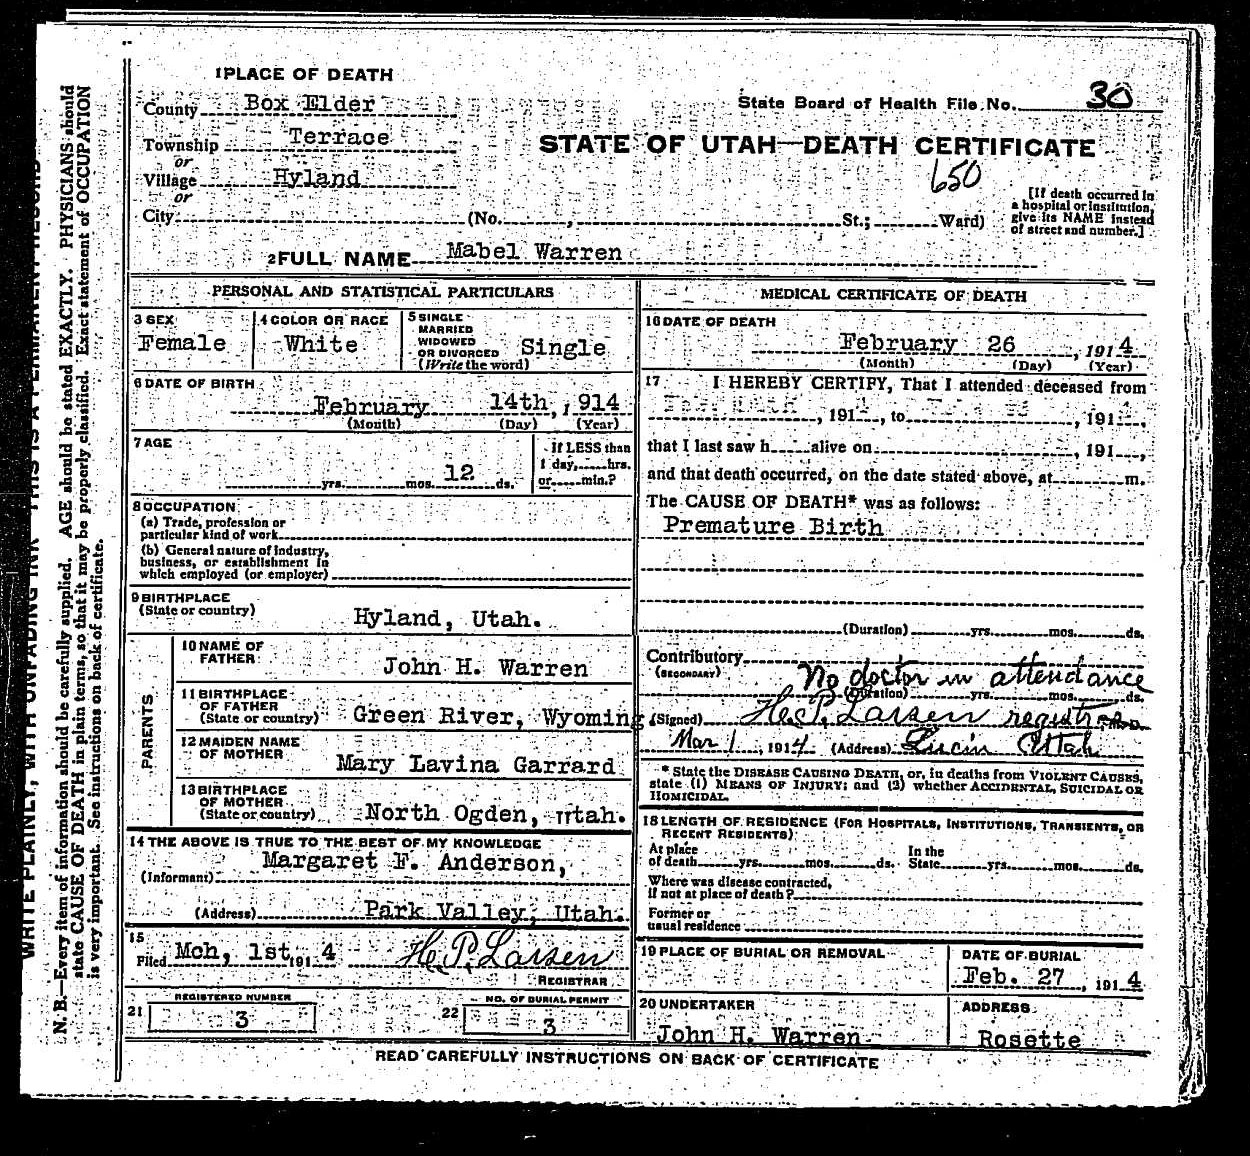 1 PLACE OF DEATH
County Box Elder
State Board of Health File No. 30
Township Terrace
or
Village Hyland
or
City (No. , St.; Ward)
STATE OF UTAH—DEATH CERTIFICATE
650
[If death occurred in
a hospital or institution,
give its NAME instead
of street and number.]
2 FULL NAME Mabel Warren
PERSONAL AND STATISTICAL PARTICULARS
3 SEX
Female
4 COLOR OR RACE
White
5 SINGLE
MARRIED
WIDOWED
OR DIVORCED
(Write the word)
Single
6 DATE OF BIRTH
February 14th, 1914
(Month) (Day) (Year)
7 AGE
yrs. mos. 12 ds.
If LESS than
1 day, hrs.
or min.?
8 OCCUPATION
(a) Trade, profession or
particular kind of work
(b) General nature of industry,
business, or establishment in
which employed (or employer)
9 BIRTHPLACE
(State or country)
Hyland, Utah.
PARENTS
10 NAME OF
FATHER
John H. Warren
11 BIRTHPLACE
OF FATHER
(State or country)
Green River, Wyoming
12 MAIDEN NAME
OF MOTHER
Mary Lavina Garrard
13 BIRTHPLACE
OF MOTHER
(State or country)
North Ogden, Utah.
14 THE ABOVE IS TRUE TO THE BEST OF MY KNOWLEDGE
(Informant) Margaret F. Anderson,
(Address) Park Valley, Utah.
15
Filed Mch, 1st, 1914 H.P. Larsen
REGISTRAR
21 REGISTERED NUMBER
3
22 NO. OF BURIAL PERMIT
3
MEDICAL CERTIFICATE OF DEATH
16 DATE OF DEATH
February 26, 1914
(Month) (Day) (Year)
17 I HEREBY CERTIFY, That I attended deceased from
, 191 , to , 191 ,
that I last saw h alive on , 191 ,
and that death occurred, on the date stated above, at m.
The CAUSE OF DEATH* was as follows:
Premature Birth
(Duration) yrs. mos. ds.
Contributory
(SECONDARY)
No doctor in attendance
(Duration) yrs. mos. ds.
(Signed) H.P. Larsen registrar M.D.
Mar 1, 1914 (Address) Lucin Utah
* State the DISEASE CAUSING DEATH, or, in deaths from VIOLENT CAUSES,
state (1) MEANS OF INJURY; and (2) whether ACCIDENTAL, SUICIDAL OR
HOMICIDAL.
18 LENGTH OF RESIDENCE (FOR HOSPITALS, INSTITUTIONS, TRANSIENTS, OR
RECENT RESIDENTS)
At place
of death yrs. mos. ds.
In the
State yrs. mos. ds.
Where was disease contracted,
if not at place of death?
Former or
usual residence
19 PLACE OF BURIAL OR REMOVAL
DATE OF BURIAL
Feb. 27, 1914
20 UNDERTAKER
John H. Warren
ADDRESS
Rosette
READ CAREFULLY INSTRUCTIONS ON BACK OF CERTIFICATE
WRITE PLAINLY, WITH UNFADING INK—THIS IS A PERMANENT RECORD
N. B.—Every item of information should be carefully supplied. AGE should be stated EXACTLY. PHYSICIANS should
state CAUSE OF DEATH in plain terms, so that it may be properly classified. Exact statement of OCCUPATION
is very important. See instructions on back of certificate.